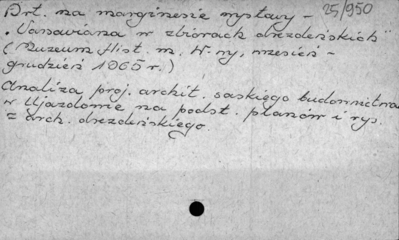 Art. na marginesie wystawy - 25/950
"Varsaviana w zbiorach drezdeńskich"
(Muzeum Hist. m. W-wy, wrzesień -
grudzień 1965 r.)
Analiza proj. archit. saskiego budownictwa
w Ujazdowie na podst. planów i rys.
z arch. drezdeńskiego.